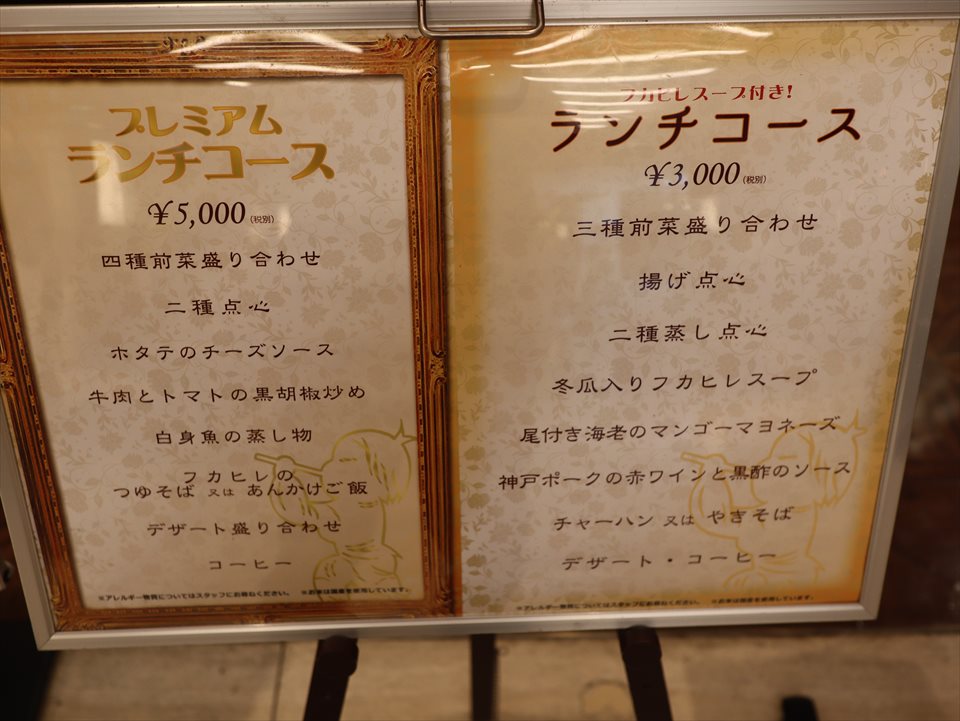 プレミアム
ランチコース
¥5,000(税別)
四種前菜盛り合わせ
二種点心
ホタテのチーズソース
牛肉とトマトの黒胡椒炒め
白身魚の蒸し物
フカヒレの
つゆそば 又は あんかけご飯
デザート盛り合わせ
コーヒー
※アレルギー物質についてはスタッフにお尋ねください。 ※お米は国産を使用しています。
フカヒレスープ付き!
ランチコース
¥3,000(税別)
三種前菜盛り合わせ
揚げ点心
二種蒸し点心
冬瓜入りフカヒレスープ
尾付き海老のマンゴーマヨネーズ
神戸ポークの赤ワインと黒酢のソース
チャーハン 又は やきそば
デザート・コーヒー
※アレルギー物質についてはスタッフにお尋ねください。 ※お米は国産を使用しています。